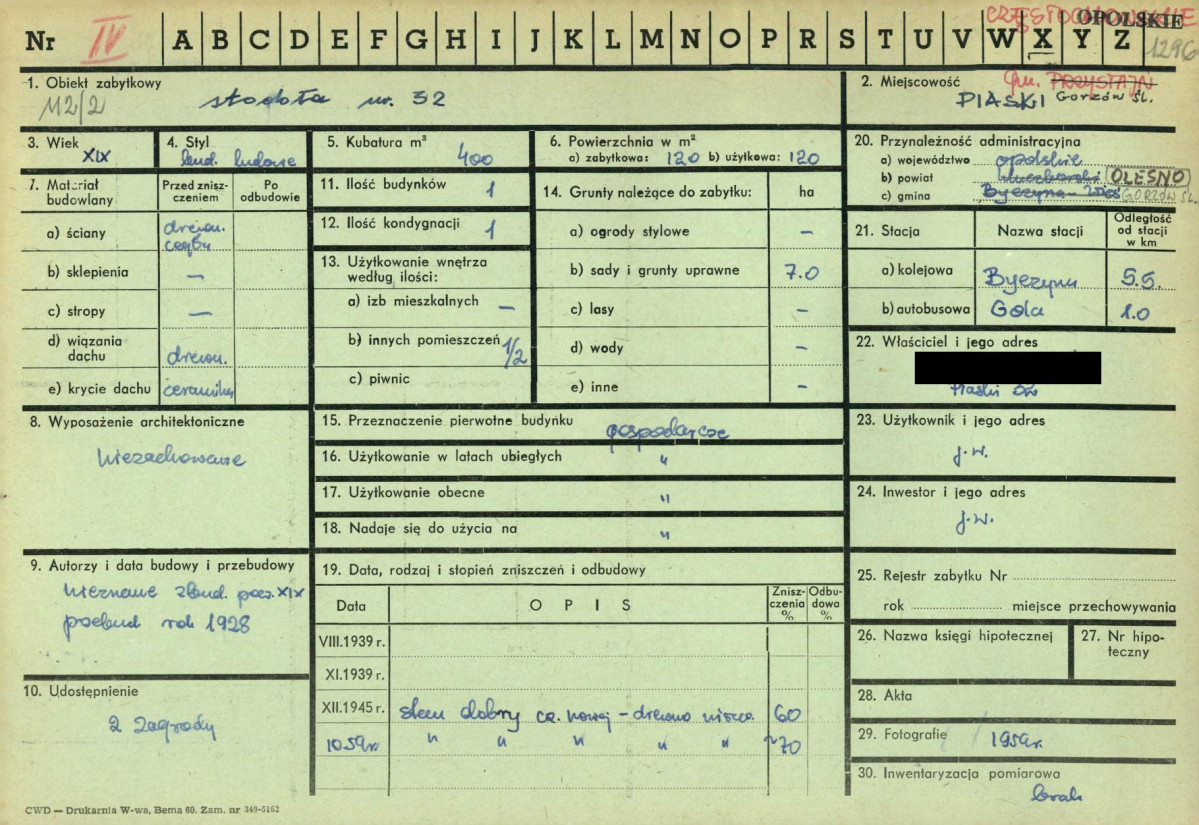 CZĘSTOCHOWSKIE
OPOLSKIE
Nr IV A B C D E F G H I J K L M N O P R S T U V W X Y Z 1296
1. Obiekt zabytkowy
M2/2
stodoła nr. 32
2. Miejscowość gm. PRZYSTAJŃ
PIASKI Gorzów Śl.
3. Wiek
XIX
4. Styl
bud. ludowe
5. Kubatura m³
400
6. Powierzchnia w m²
a) zabytkowa: 120 b) użytkowa: 120
20. Przynależność administracyjna
a) województwo opolskie
b) powiat kluczborski OLESNO
c) gmina Byczyna-wieś GORZÓW ŚL.
7. Materiał budowlany
Przed zniszczeniem
Po odbudowie
a) ściany drewn. cegła
b) sklepienia —
c) stropy —
d) wiązania dachu drewn.
e) krycie dachu ceramika
11. Ilość budynków 1
12. Ilość kondygnacji 1
13. Użytkowanie wnętrza według ilości:
a) izb mieszkalnych —
b) innych pomieszczeń 1/2
c) piwnic
14. Grunty należące do zabytku: ha
a) ogrody stylowe —
b) sady i grunty uprawne 7.0
c) lasy —
d) wody —
e) inne —
21. Stacja
Nazwa stacji
Odległość od stacji w km
a) kolejowa Byczyna 5.5.
b) autobusowa Gola 1.0
22. Właściciel i jego adres
Piaski
8. Wyposażenie architektoniczne
niezachowane
15. Przeznaczenie pierwotne budynku gospodarcze
16. Użytkowanie w latach ubiegłych "
17. Użytkowanie obecne "
18. Nadaje się do użycia na "
23. Użytkownik i jego adres
j.w.
24. Inwestor i jego adres
j.w.
9. Autorzy i data budowy i przebudowy
nieznane zbud. pocz. XIX
przebud rok 1928
10. Udostępnienie
z zagrody
19. Data, rodzaj i stopień zniszczeń i odbudowy
Data
O P I S
Zniszczenia %
Odbudowa %
VIII.1939 r.
XI.1939 r.
XII.1945 r. stan dobry cz. nowej – drewno niszcz. 60
10.59 r. " " " " " ~70
25. Rejestr zabytku Nr
rok miejsce przechowywania
26. Nazwa księgi hipotecznej
27. Nr hipoteczny
28. Akta
29. Fotografie 1959r.
30. Inwentaryzacja pomiarowa
brak
CWD — Drukarnia W-wa, Bema 60. Zam. nr 349-5162